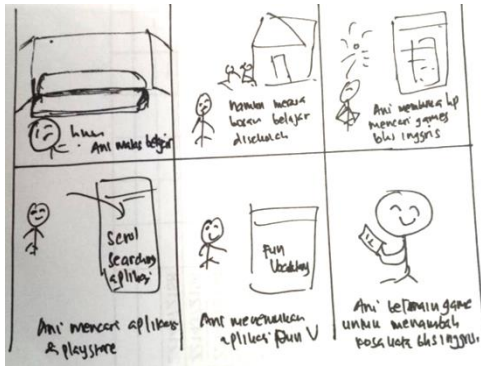 hmm
Ani malas belajar
namun merasa
bosan belajar
disekolah
Ani membuka hp
mencari games
bhs inggris
Scrol
Searching
aplikasi
Ani mencari aplikasi
di playstore
Fun
Vocabulary
Ani menemukan
aplikasi Fun V
Ani bermain game
untuk menambah
kosa kata bhs inggris.